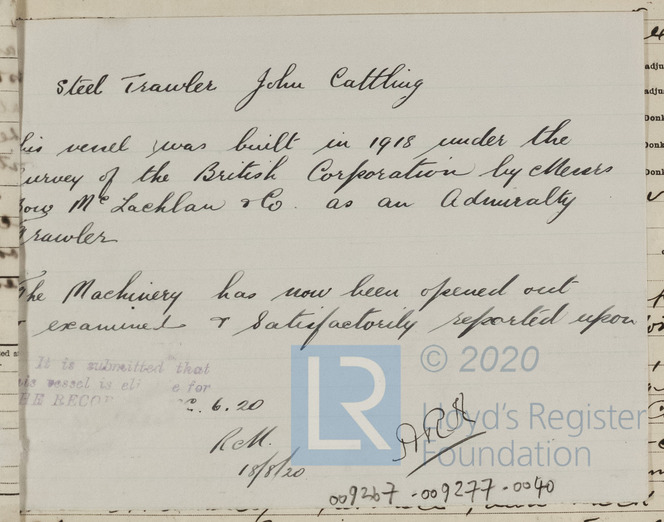 Steel Trawler John Cattling
his vessel was built in 1918 under the
urvey of the British Corporation by Messrs
ow McLachlan & Co. as an Admiralty
Trawler
The Machinery has now been opened out
& examined & Satisfactorily reported upon
It is submitted that
is vessel is eli e for
BE RECOR . 6.20
R.M.
18/8/20
ARR
LR
© 2020
Lloyd's Register
Foundation
009267-009277-0040
adju
adju
Donk
Donk